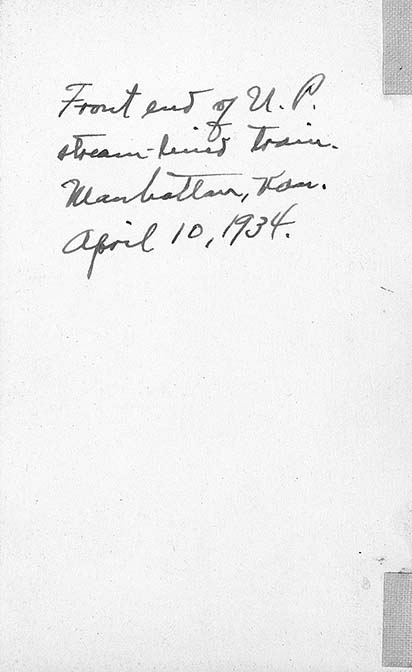 Front end of U. P.
stream-lined train.
Manhattan, Kan.
April 10, 1934.